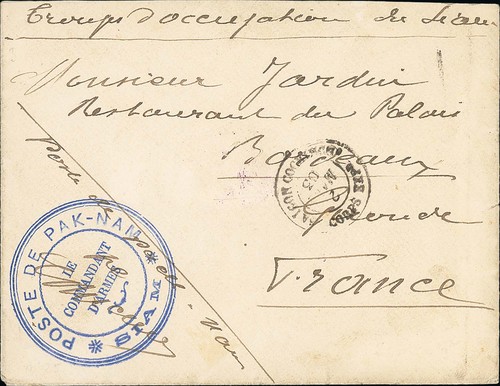 Troupes d'occupation du Siam
Monsieur Jardin
Restaurant du Palais
Bordeaux
Gironde
France
Poste de Pack-nam
POSTE DE PAK-NAM
* SIAM *
LE
COMMANDANT
D'ARMES
03
CORPS